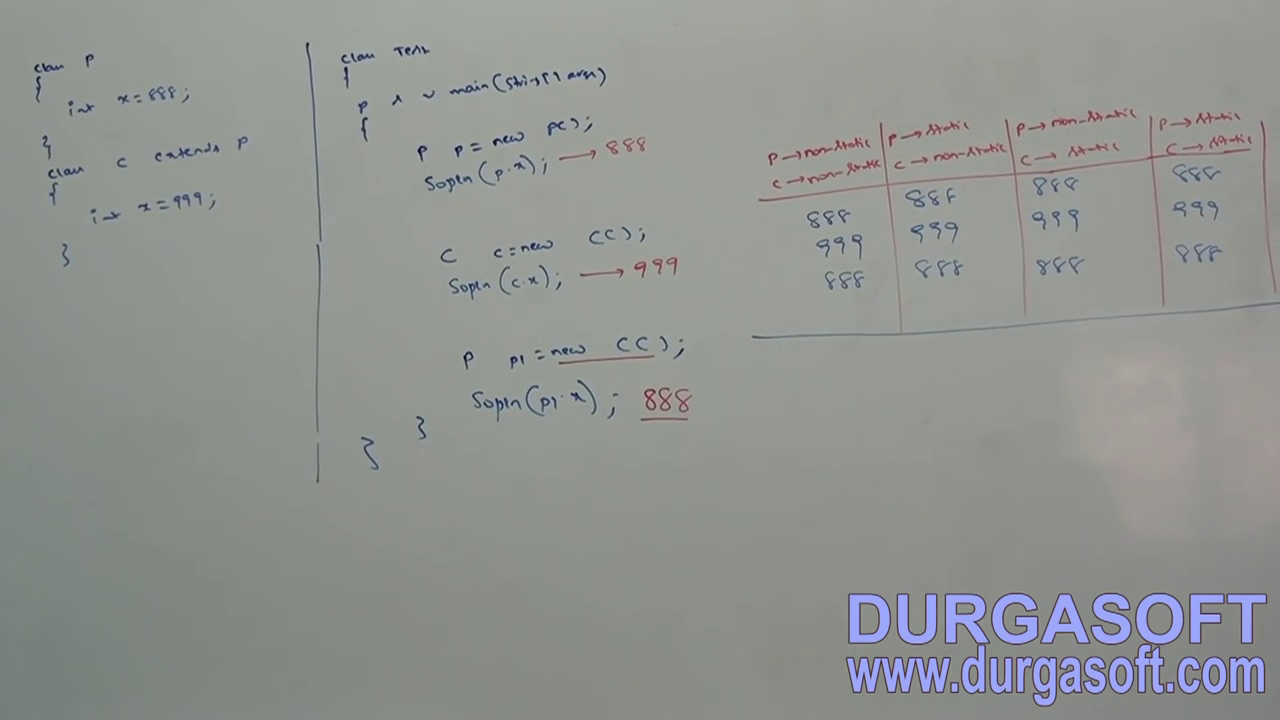 class P
{
int x=888;
}
class C extends P
{
int x=999;
}
class Test
{
P s v main(String[] args)
{
P p=new P();
Sopln(p.x); → 888
C c=new C();
Sopln(c.x); → 999
P p1=new C();
Sopln(p1.x); 888
}
}
P→non-static P→static P→non-static P→static
C→non-static C→non-static C→static C→static
888 888 888 888
999 999 999 999
888 888 888 888
DURGASOFT
www.durgasoft.com